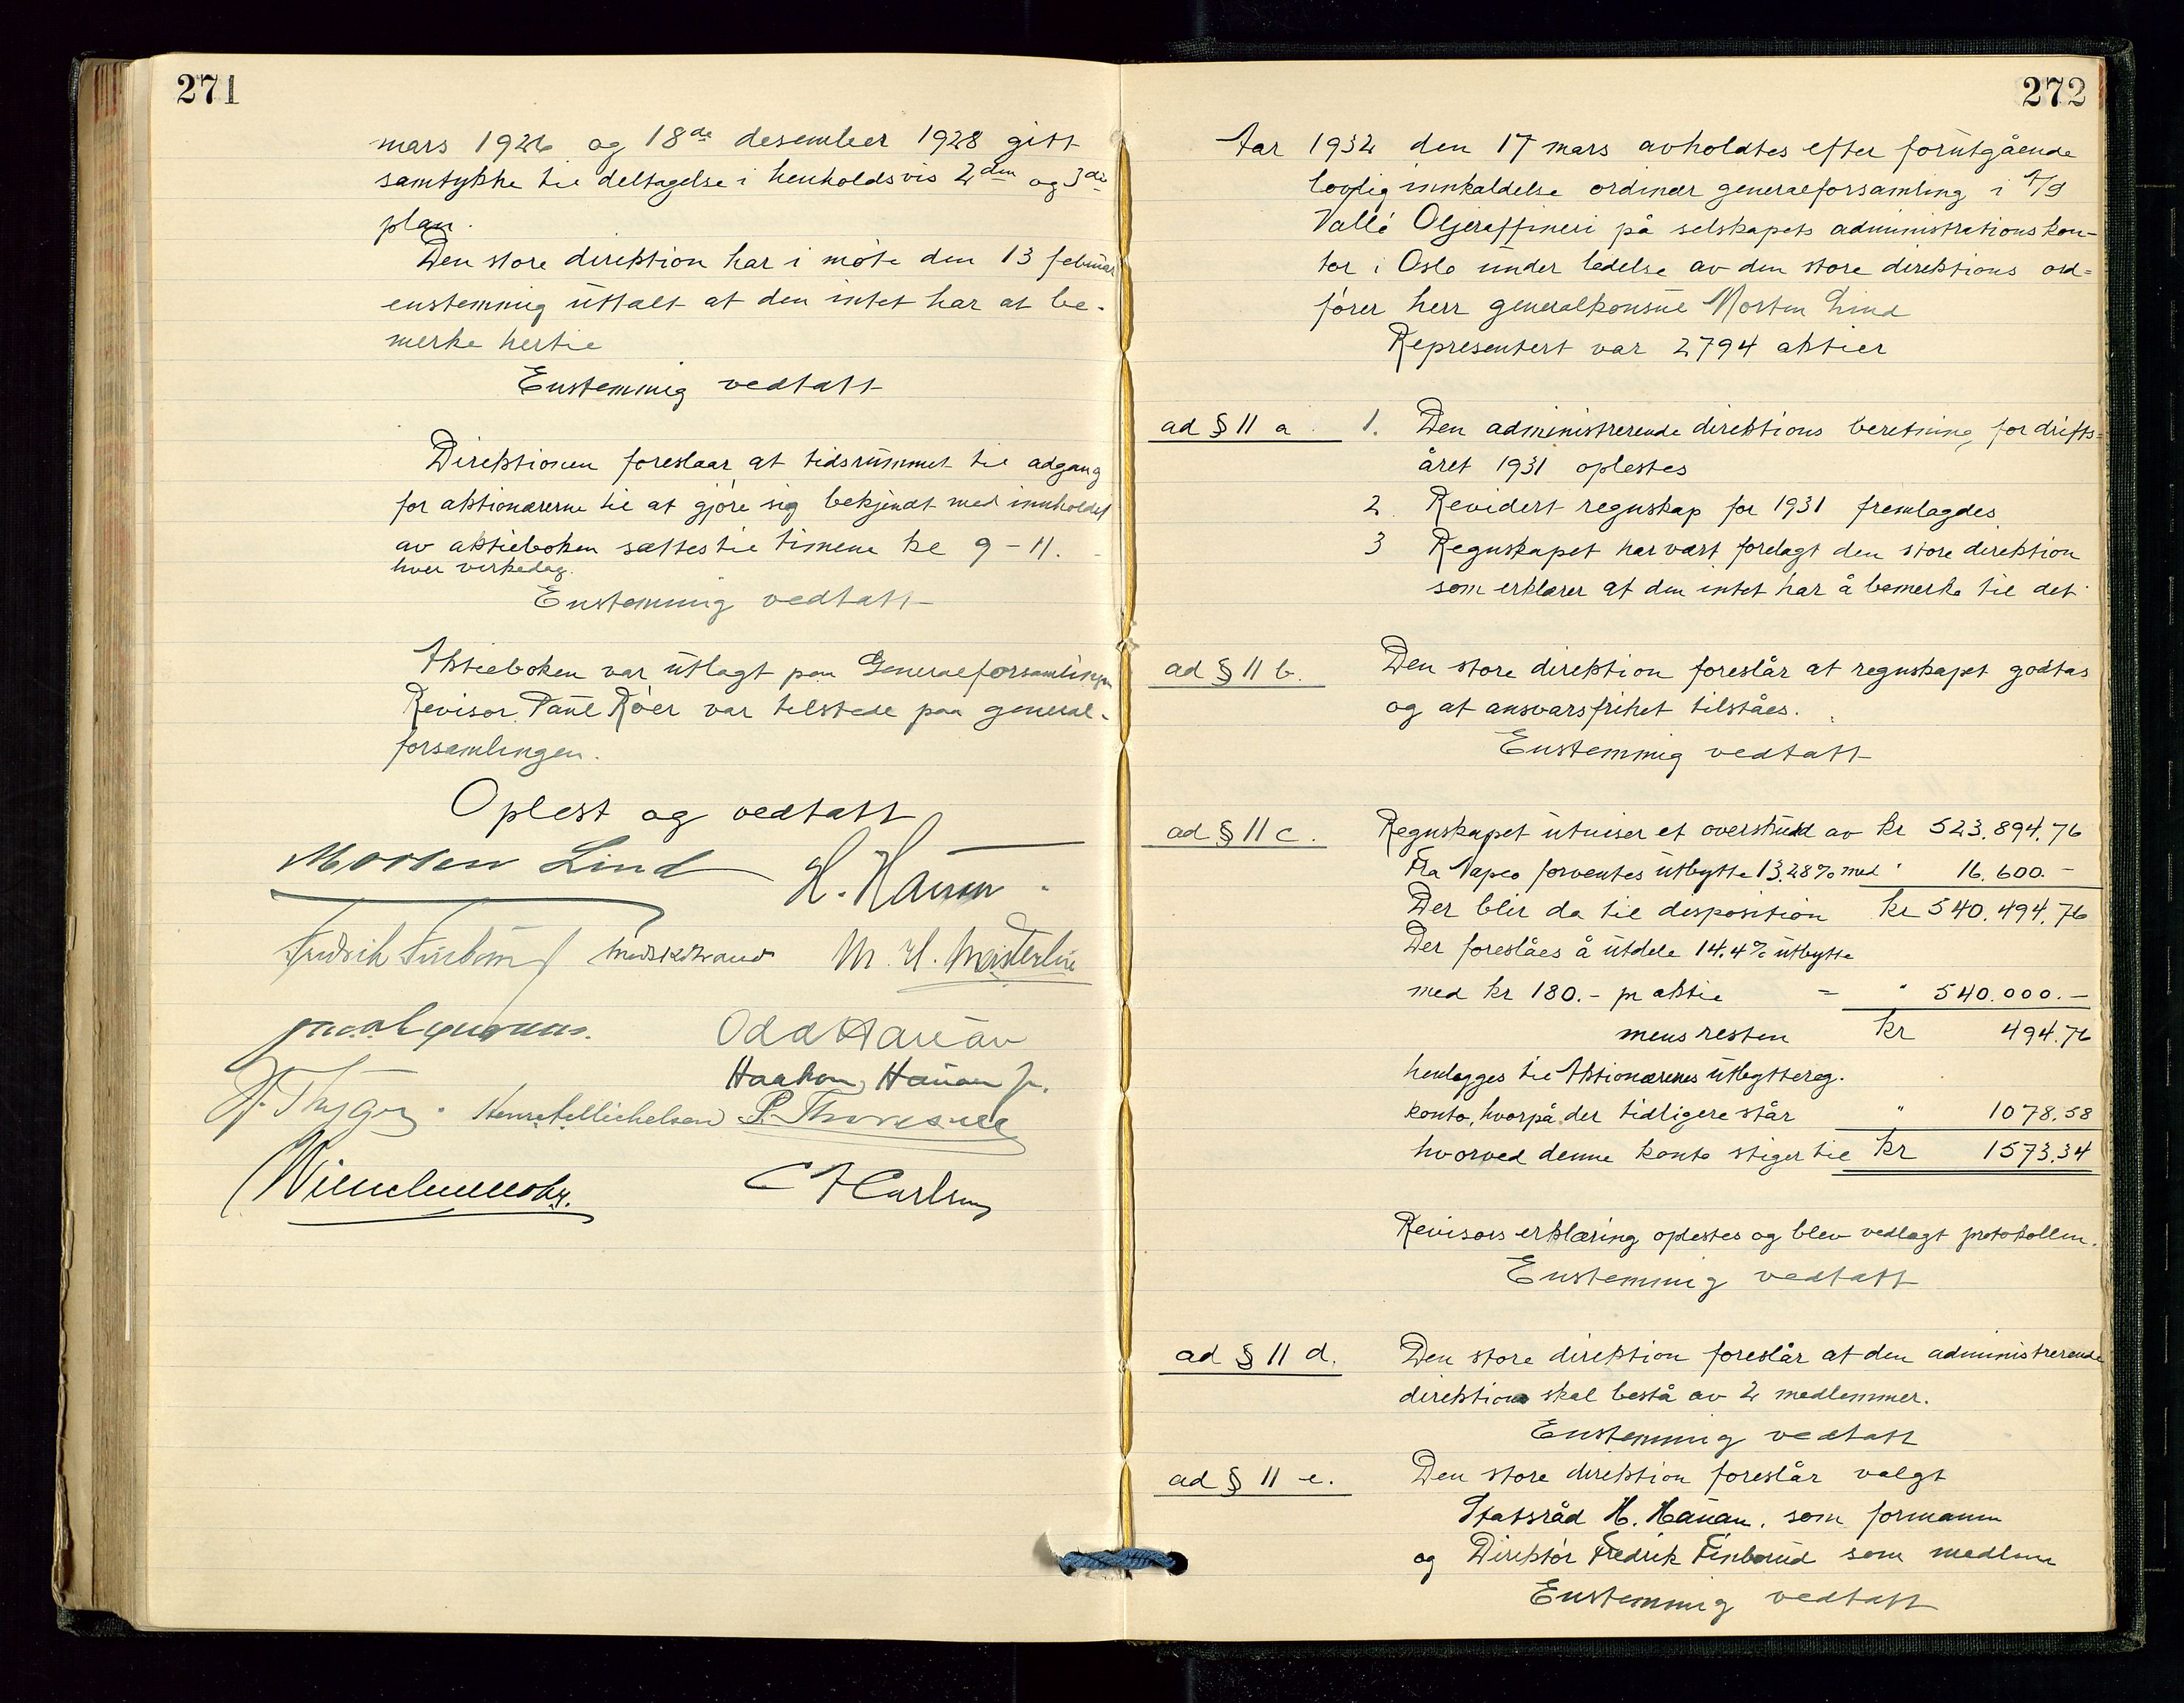 271
mars 1926 og 18de desember 1928 gitt
samtykke til deltagelse i henholdsvis 2den og 3die
plan.
Den store direktion har i möte den 13 februar
enstemmig uttalt at den intet har at be-
merke hertil
Enstemmig vedtatt
Direktionen foreslaar at tidsrummet til adgang
for aktionærerne til at gjöre sig bekjendt med innholdet
av aktieboken sættes til timene kl 9 - 11.
hver virkedag.
Enstemmig vedtatt
Aktieboken var utlagt paa Generalforsamlingen
Revisor Paul Röer var tilstede paa general-
forsamlingen.
Oplest og vedtatt
Morten Lind H. Hauan
Fredrik Finborud
Odd Hauan
Haakon Hauan jr.
H. Thygesen
C A Carlsen
272
Aar 1932 den 17 mars avholdtes efter forutgående
lovlig innkaldelse ordinær generalforsamling i A/S
Vallö Oljeraffineri på selskapets administrationskon-
tor i Oslo under ledelse av den store direktions ord-
förer herr generalkonsul Morten Lind
Representert var 2794 aktier
ad § 11 a 1. Den administrerende direktions beretning for drifts-
året 1931 oplestes
2. Revidert regnskap for 1931 fremlagdes
3 Regnskapet har vært forelagt den store direktion
som erklærer at den intet har å bemerke til det
ad § 11 b. Den store direktion foreslår at regnskapet godtas
og at ansvarsfrihet tilståes.
Enstemmig vedtatt
ad § 11 c. Regnskapet utviser et overskudd av kr 523.894.76
Fra Vapco forventes utbytte 13.28% med " 16.600.-
Der blir da til disposition kr 540.494.76
Der foreslåes å utdele 14.4% utbytte
med kr 180.- pr aktie = " 540.000.-
mens resten kr 494.76
henlegges til Aktionærenes Utbyttereg.
konto, hvorpå der tidligere står " 1078.58
hvorved denne konto stiger til kr 1573.34
Revisors erklæring oplestes og blev vedlagt protokollen.
Enstemmig vedtatt
ad § 11 d. Den store direktion foreslår at den administrerende
direktion skal bestå av 2 medlemmer.
Enstemmig vedtatt
ad § 11 e. Den store direktion foreslår valgt
Statsråd H. Hauan. som formann
og Direktör Fredrik Finborud som medlem
Enstemmig vedtatt